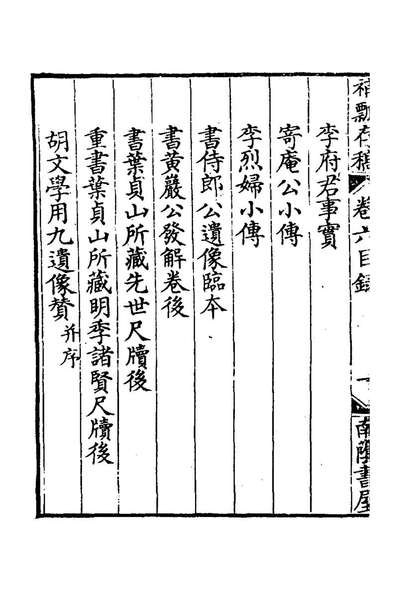 補瓢存稿 卷六目錄 一 南蔭書屋
李府君事實
寄庵公小傳
李烈婦小傳
書侍郎公遺像臨本
書黃巖公發解卷後
書葉貞山所藏先世尺牘後
重書葉貞山所藏明季諸賢尺牘後
胡文學用九遺像贊 并序